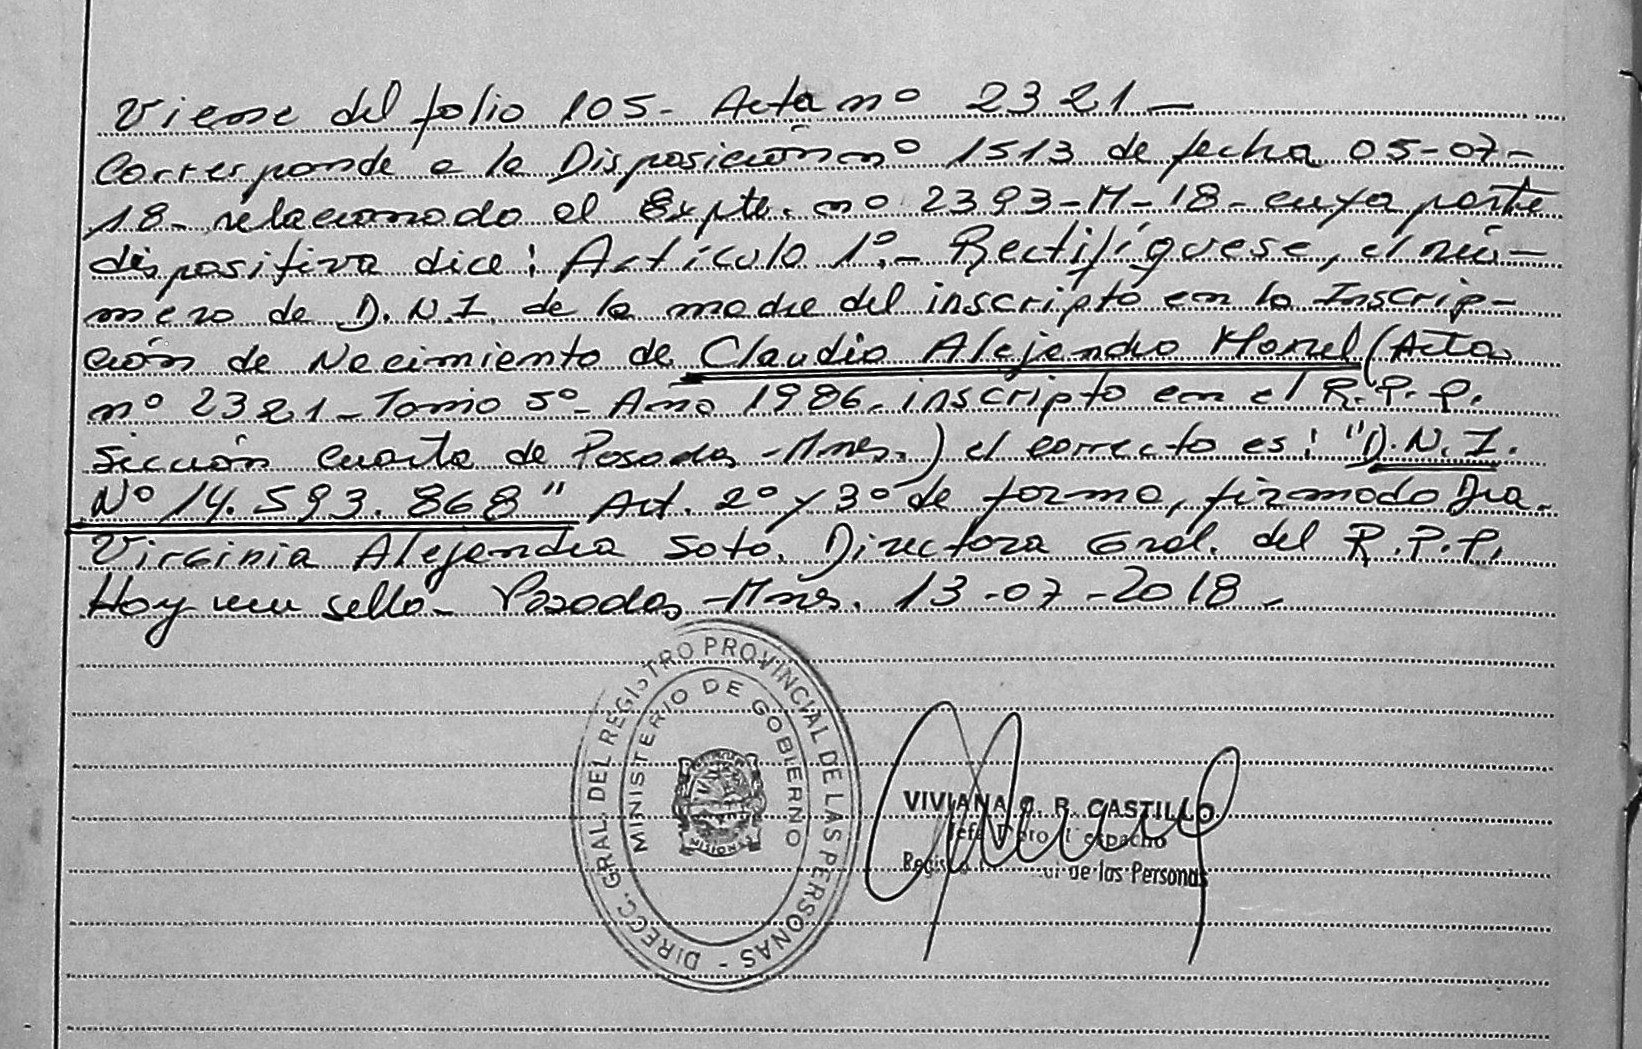 Viene del folio 105- Acta nº 2321-
Corresponde a la Disposición nº 1513 de fecha 05-07-
18- relacionado al Expte. nº 2393-M-18- cuya parte
dispositiva dice: Artículo 1º.- Rectifíquese, el nú-
mero de D.N.I. de la madre del inscripto en la Inscrip-
ción de Nacimiento de Claudio Alejandro (Acta
nº 2321- Tomo 5º- Año 1986- inscripto en el R.P.P.
Sección Cuarta de Posadas -Mnes.) el correcto es: "D.N.I.
Nº 14.593.868" Art. 2º y 3º de forma, firmado Dra.
Virginia Alejandra Soto. Directora Gral. del R.P.P.
Hoy mi sello- Posadas -Mnes. 13-07-2018-
DIRECC. GRAL. DEL REGISTRO PROVINCIAL DE LAS PERSONAS -
MINISTERIO DE GOBIERNO
MISIONES
VIVIANA R. CASTILLO
Jefe Dpto Despacho
de las Personas